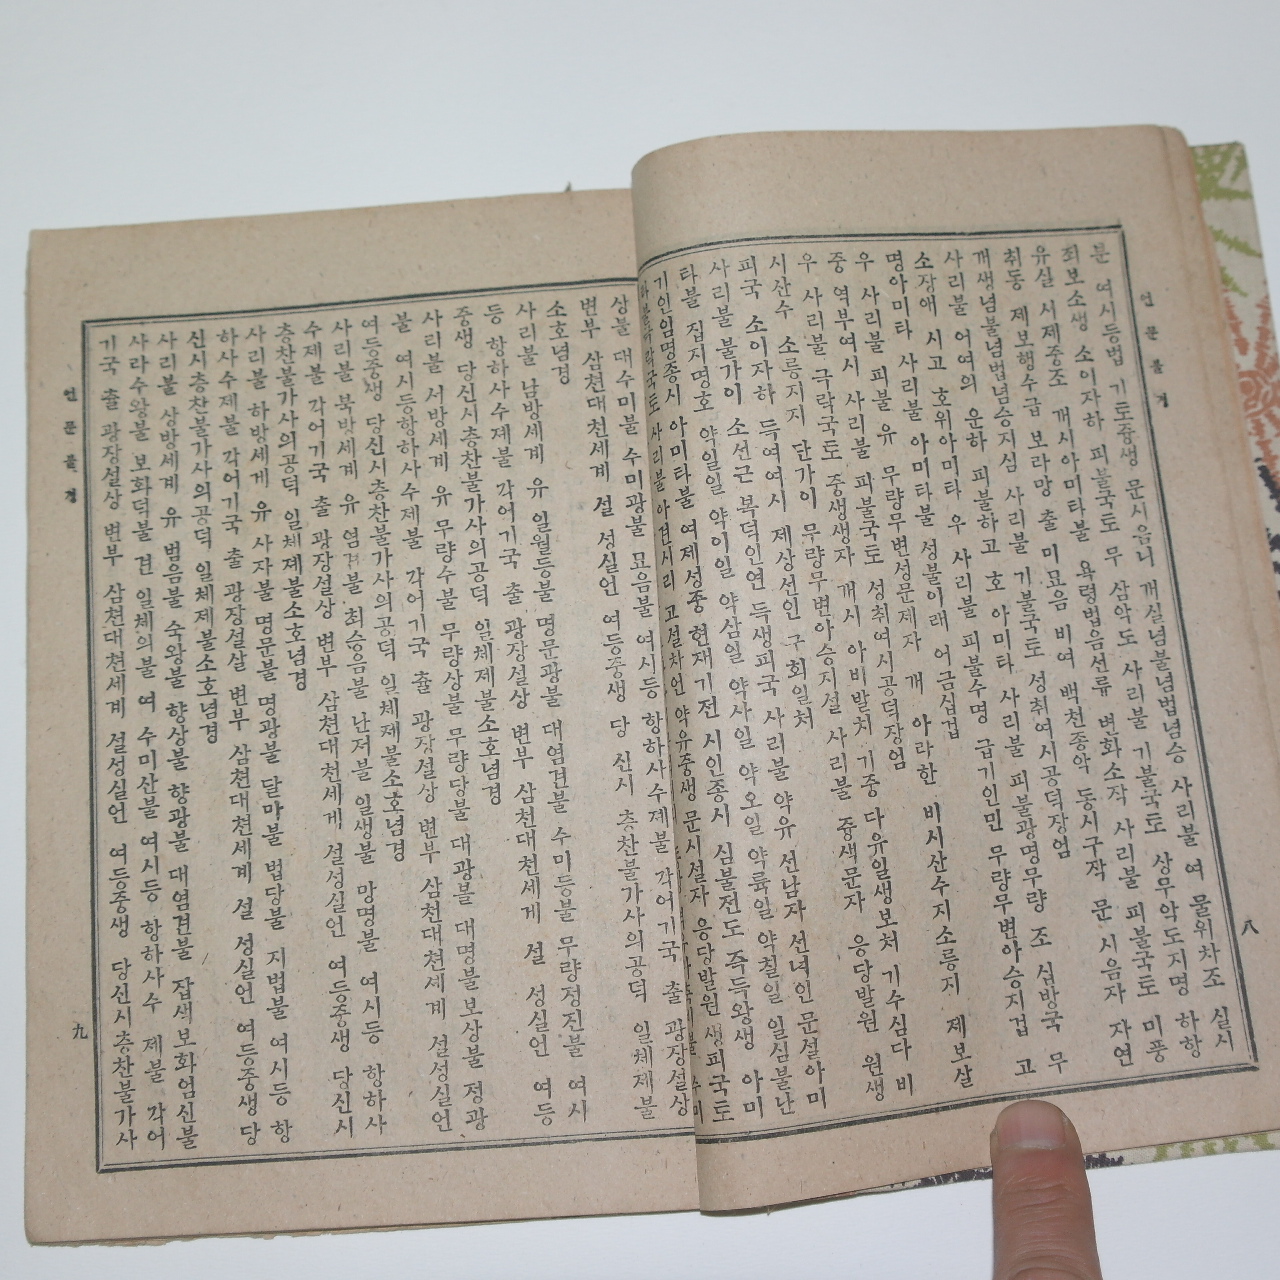 언문불경
분 여시등법 기토중생 문시음니 개실념불념법념승 사리불 여 물위차조 실시
죄보소생 소이자하 피불국토 무 삼악도 사리불 기불국토 상무악도지명 하항
유실 서제중조 개시아미타불 욕령법음선류 변화소작 사리불 피불국토 미풍
취동 제보행수급 보라망 출 미묘음 비여 백천종악 동시구작 문 시음자 자연
개생념불념법념승지심 사리불 기불국토 성취여시공덕장엄
사리불 어여의 운하 피불하고 호 아미타 사리불 피불광명무량 조 십방국 무
소장애 시고 호위아미타 우 사리불 피불수명 급기인민 무량무변아승지겁 고
명아미타 사리불 아미타불 성불이래 어금십겁
우 사리불 피불 유 무량무변성문제자 개 아라한 비시산수지소릉지 제보살
중 역부여시 사리불 피불국토 성취여시공덕장엄
우 사리불 극락국토 중생생자 개시 아비발치 기중 다유일생보처 기수심다 비
시산수 소릉지지 단가이 무량무변아승지설 사리불 중생문자 응당발원 원생
피국 소이자하 득여여시 제상선인 구회일처
사리불 불가이 소선근 복덕인연 득생피국 사리불 약유 선남자 선녀인 문설아미
타불 집지명호 약일일 약이일 약삼일 약사일 약오일 약륙일 약칠일 일심불난
기인임명종시 아미타불 여제성중 현재기전 시인종시 심불전도 즉득왕생 아미
타불극락국토 사리불 아견시리 고설차언 약유중생 문시설자 응당발원 생피국토
八
상불 대수미불 수미광불 묘음불 여시등 항하사수제불 각어기국 출 광장설상
변부 삼천대천세계 설 성실언 여등중생 당 신시 층찬불가사의공덕 일체제불
소호념경
사리불 남방세계 유 일월등불 명문광불 대염견불 수미등불 무량정진불 여시
등 항하사수제불 각어기국 출 광장설상 변부 삼천대천세게 설 성실언 여등
중생 당신시층찬불가사의공덕 일체제불소호념경
사리불 서방세계 유 무량수불 무량상불 무량당불 대광불 대명불 보상불 정광
불 여시등항하사수제불 각어기국 츌 광장설상 변부 삼천대천세계 설성실언
여등중생 당신시층찬불가사의공덕 일체제불소호념경
사리불 북방세계 유 염견불 최승음불 난저불 일생불 망명불 여시등 항하사
수제불 각어기국 출 광장설상 변부 삼천대천세게 설성실언 여등중생 당신시
층찬불가사의공덕 일체제불소호념경
사리불 하방세게 유 사자불 명문불 명광불 달마불 법당불 지법불 여시등 항
하사수제불 각어기국 출 광장설상 변부 삼천대천세계 설 성실언 여등중생 당
신시층찬불가사의공덕 일체제불소호념경
사리불 상방세계 유 범음불 숙왕불 향상불 향광불 대염견불 잡색보화엄신불
사라수왕불 보화덕불 견 일체의불 여 수미산불 여시등 항하사수 제불 각어
기국 출 광장설상 변부 삼천대천세계 설성실언 여등중생 당신시층찬불가사
언문불경
九